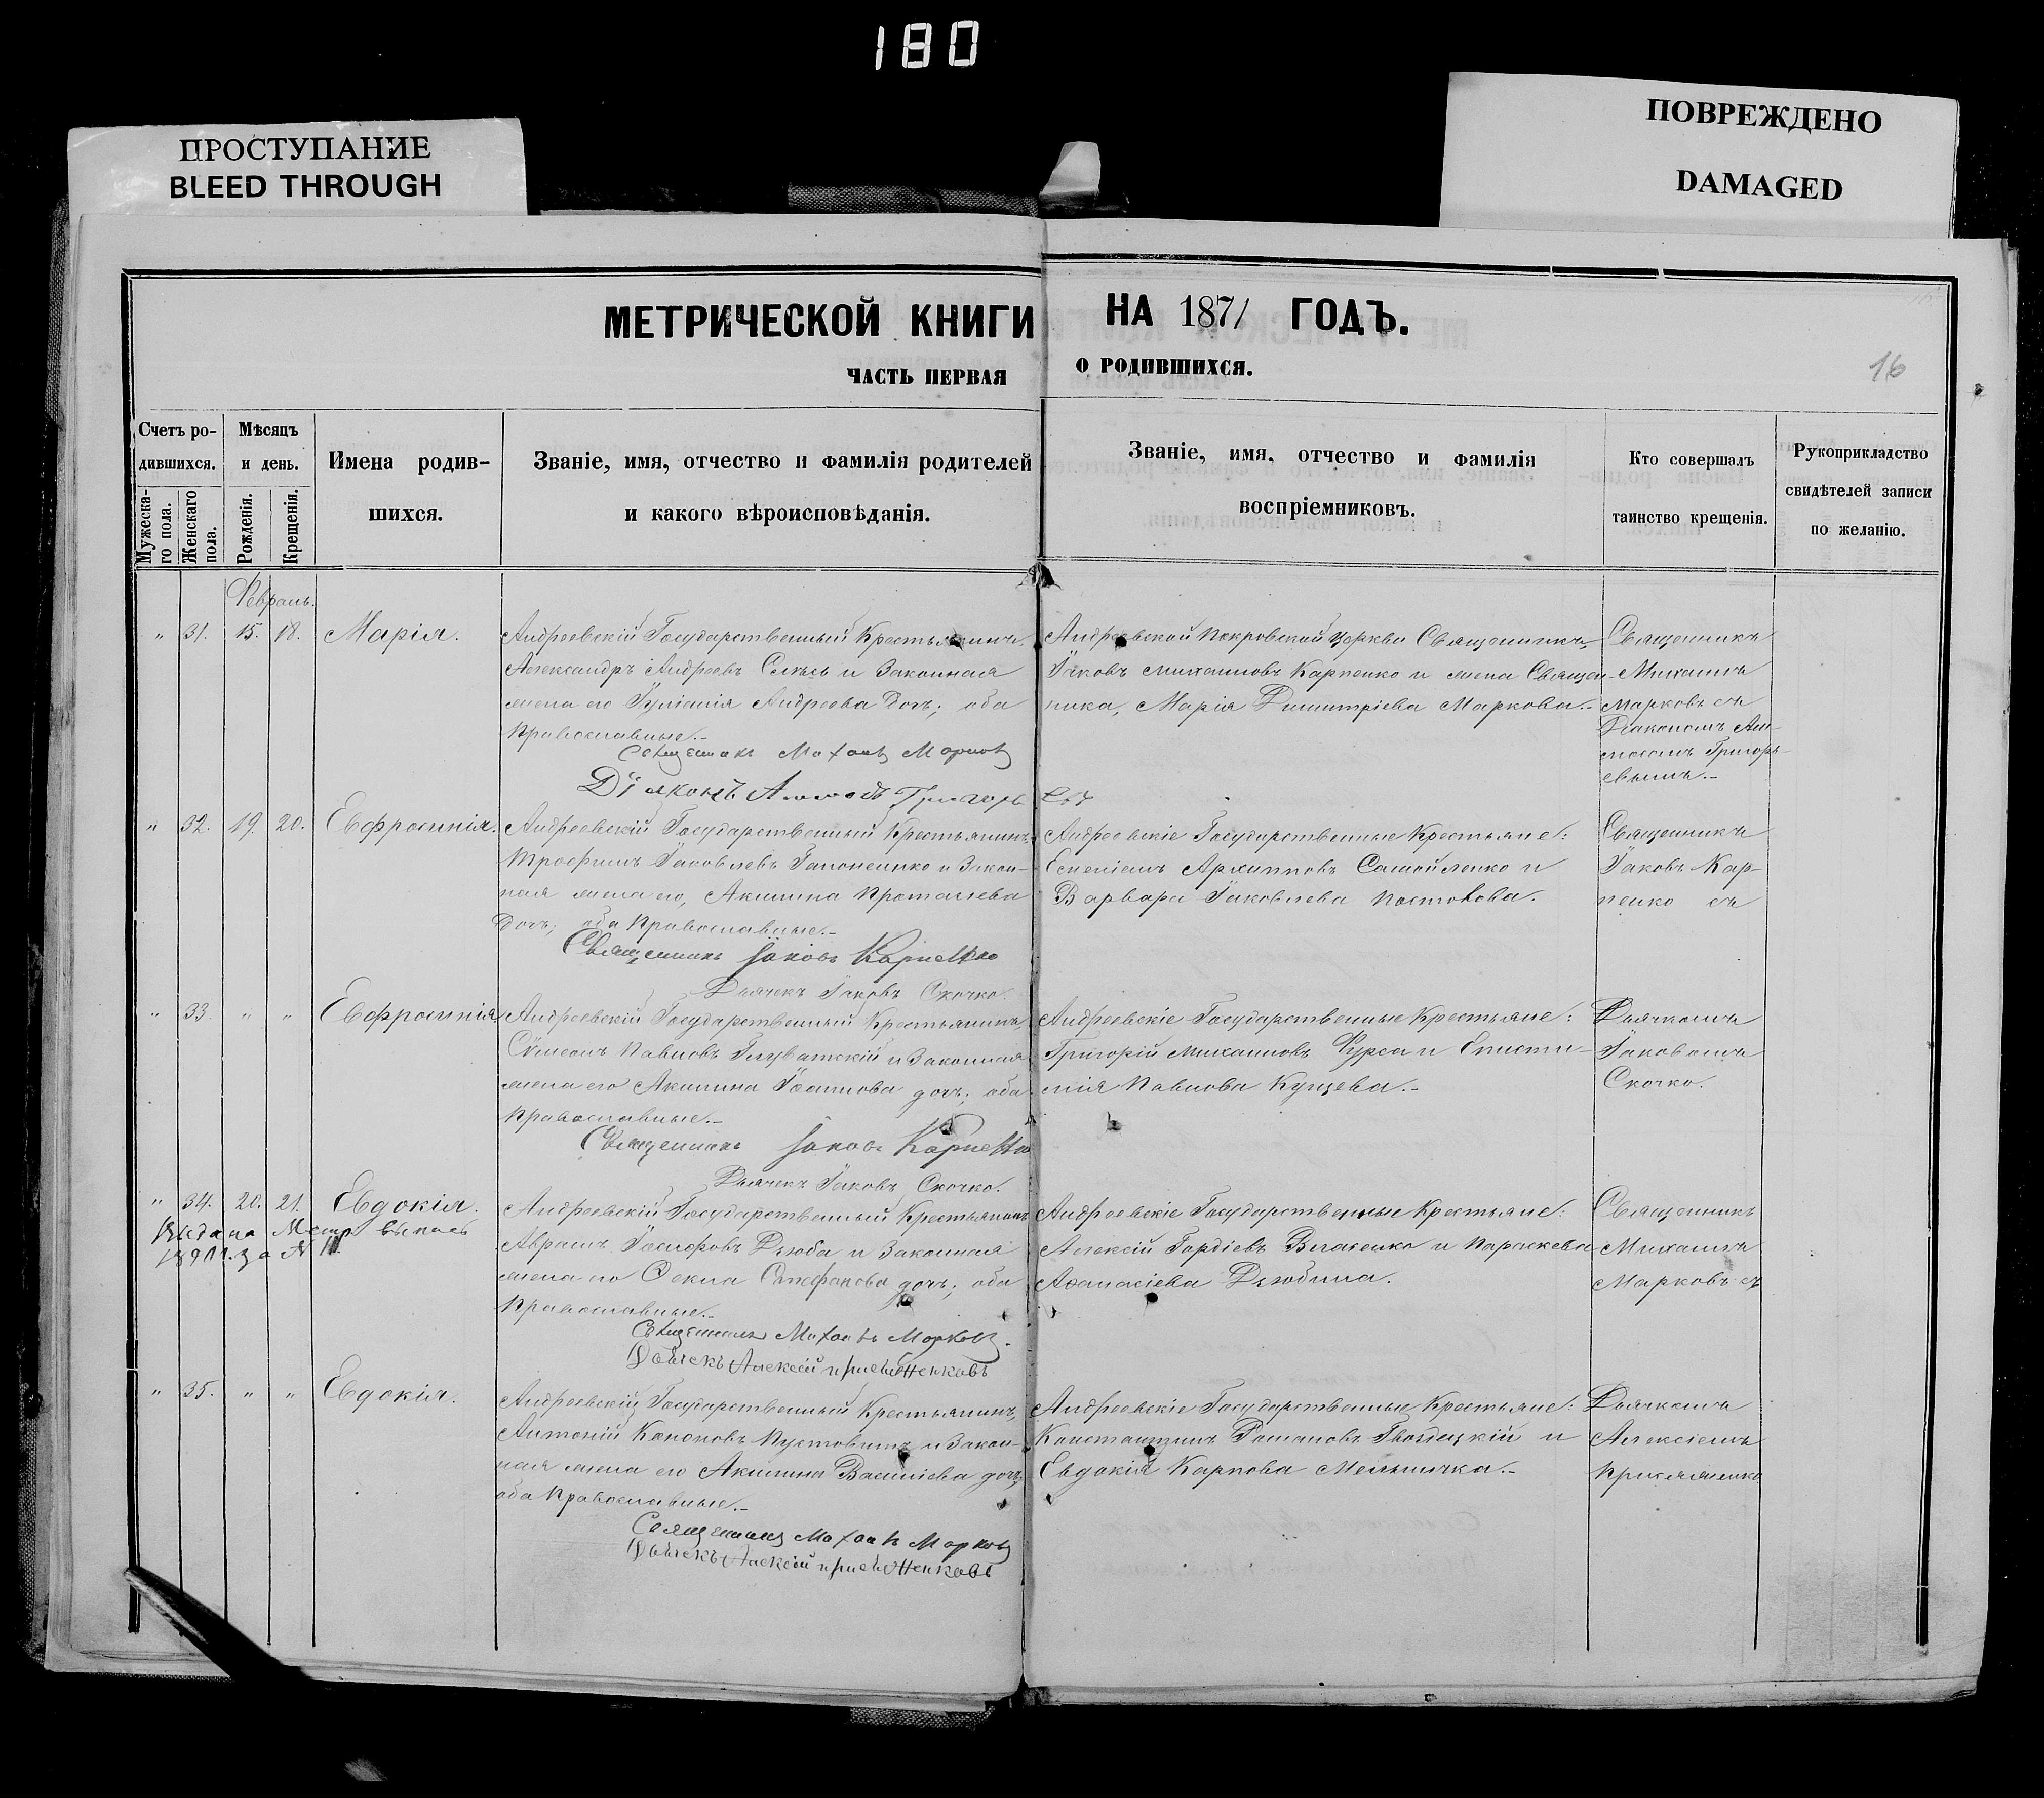 180
ПРОСТУПАНИЕ
BLEED THROUGH
ПОВРЕЖДЕНО
DAMAGED
МЕТРИЧЕСКОЙ КНИГИ НА 1871 ГОДЪ.
ЧАСТЬ ПЕРВАЯ О РОДИВШИХСЯ.
16
Счетъ ро-
дившихся.
Мужеска-
го пола.
Женскаго
пола.
Мѣсяцъ
и день.
Рожденія.
Крещенія.
Имена родив-
шихся.
Званіе, имя, отчество и фамилія родителей
и какого вѣроисповѣданія.
Званіе, имя, отчество и фамилія
воспріемниковъ.
Кто совершалъ
таинство крещенія.
Рукоприкладство
свидѣтелей записи
по желанію.
Февраль.
" 31. 15. 18. Марія.
Андреевскій Государственный Крестьянинъ,
Александръ Андреевъ и Законная
жена его Іуліанія Андреева Дочь; оба
Православные.-
Священникъ Михаилъ Марковъ
Діяконъ
Андреевской Покровской Церкви Священникъ
Іаковъ Михаиловъ Карпенко и жена Священ-
ника, Марія Димитріева Маркова.-
Священникъ
Михаилъ
Марковъ съ
Діакономъ
Григорь-
евымъ.-
" 32. 19. 20. Евфросинія.
Андреевскій Государственный Крестьянинъ,
Трофимъ Іаковлевъ Гапоненко и Закон-
ная жена его, Акилина
Дочь; оба Православные.-
Священникъ Іаковъ Карпенко
Дьячекъ Іаковъ Скочко.
Андреевскіе Государственные Крестьяне:
Архипповъ Самойленко и
Варвара Іаковлева
Священникъ
Іаковъ Кар-
пенко съ
" 33. " " Евфросинія.
Андреевскій Государственный Крестьянинъ,
Сѵмеонъ Павловъ и Законная
жена его Акилина дочь; оба
Православные.-
Священникъ Іаковъ Карпенко
Дьячекъ Іаковъ Скочко.
Андреевскіе Государственные Крестьяне:
Григорій Михаиловъ Фурса и Еписти-
мія Павлова
Дьячкомъ
Іаковомъ
Скочко.
" 34. 20. 21. Евдокія.
Выдана Метр выпись
Андреевскій Государственный Крестьянинъ
Аврамъ Іосифовъ Дзюба и Законная
жена его Ѳекла Стефанова дочь; оба
Православные.-
Священникъ Михаилъ Марковъ.
Дьячекъ Алексій
Андреевскіе Государственные Крестьяне:
Алексій Гордіевъ Власенко и Параскева
Аѳанасіева Дзюбина.
Священникъ
Михаилъ
Марковъ съ
" 35. " " Евдокія.
Андреевскій Государственный Крестьянинъ,
Антоній Кононовъ Пустовитъ и Закон-
ная жена его Акилина Василіева дочь;
оба Православные.-
Священникъ Михаилъ Марковъ
Дьячекъ Алексій
Андреевскіе Государственные Крестьяне:
Константинъ Романовъ Гвоздецкій и
Евдокія Карпова Мельничка.-
Дьячкомъ
Алексіемъ